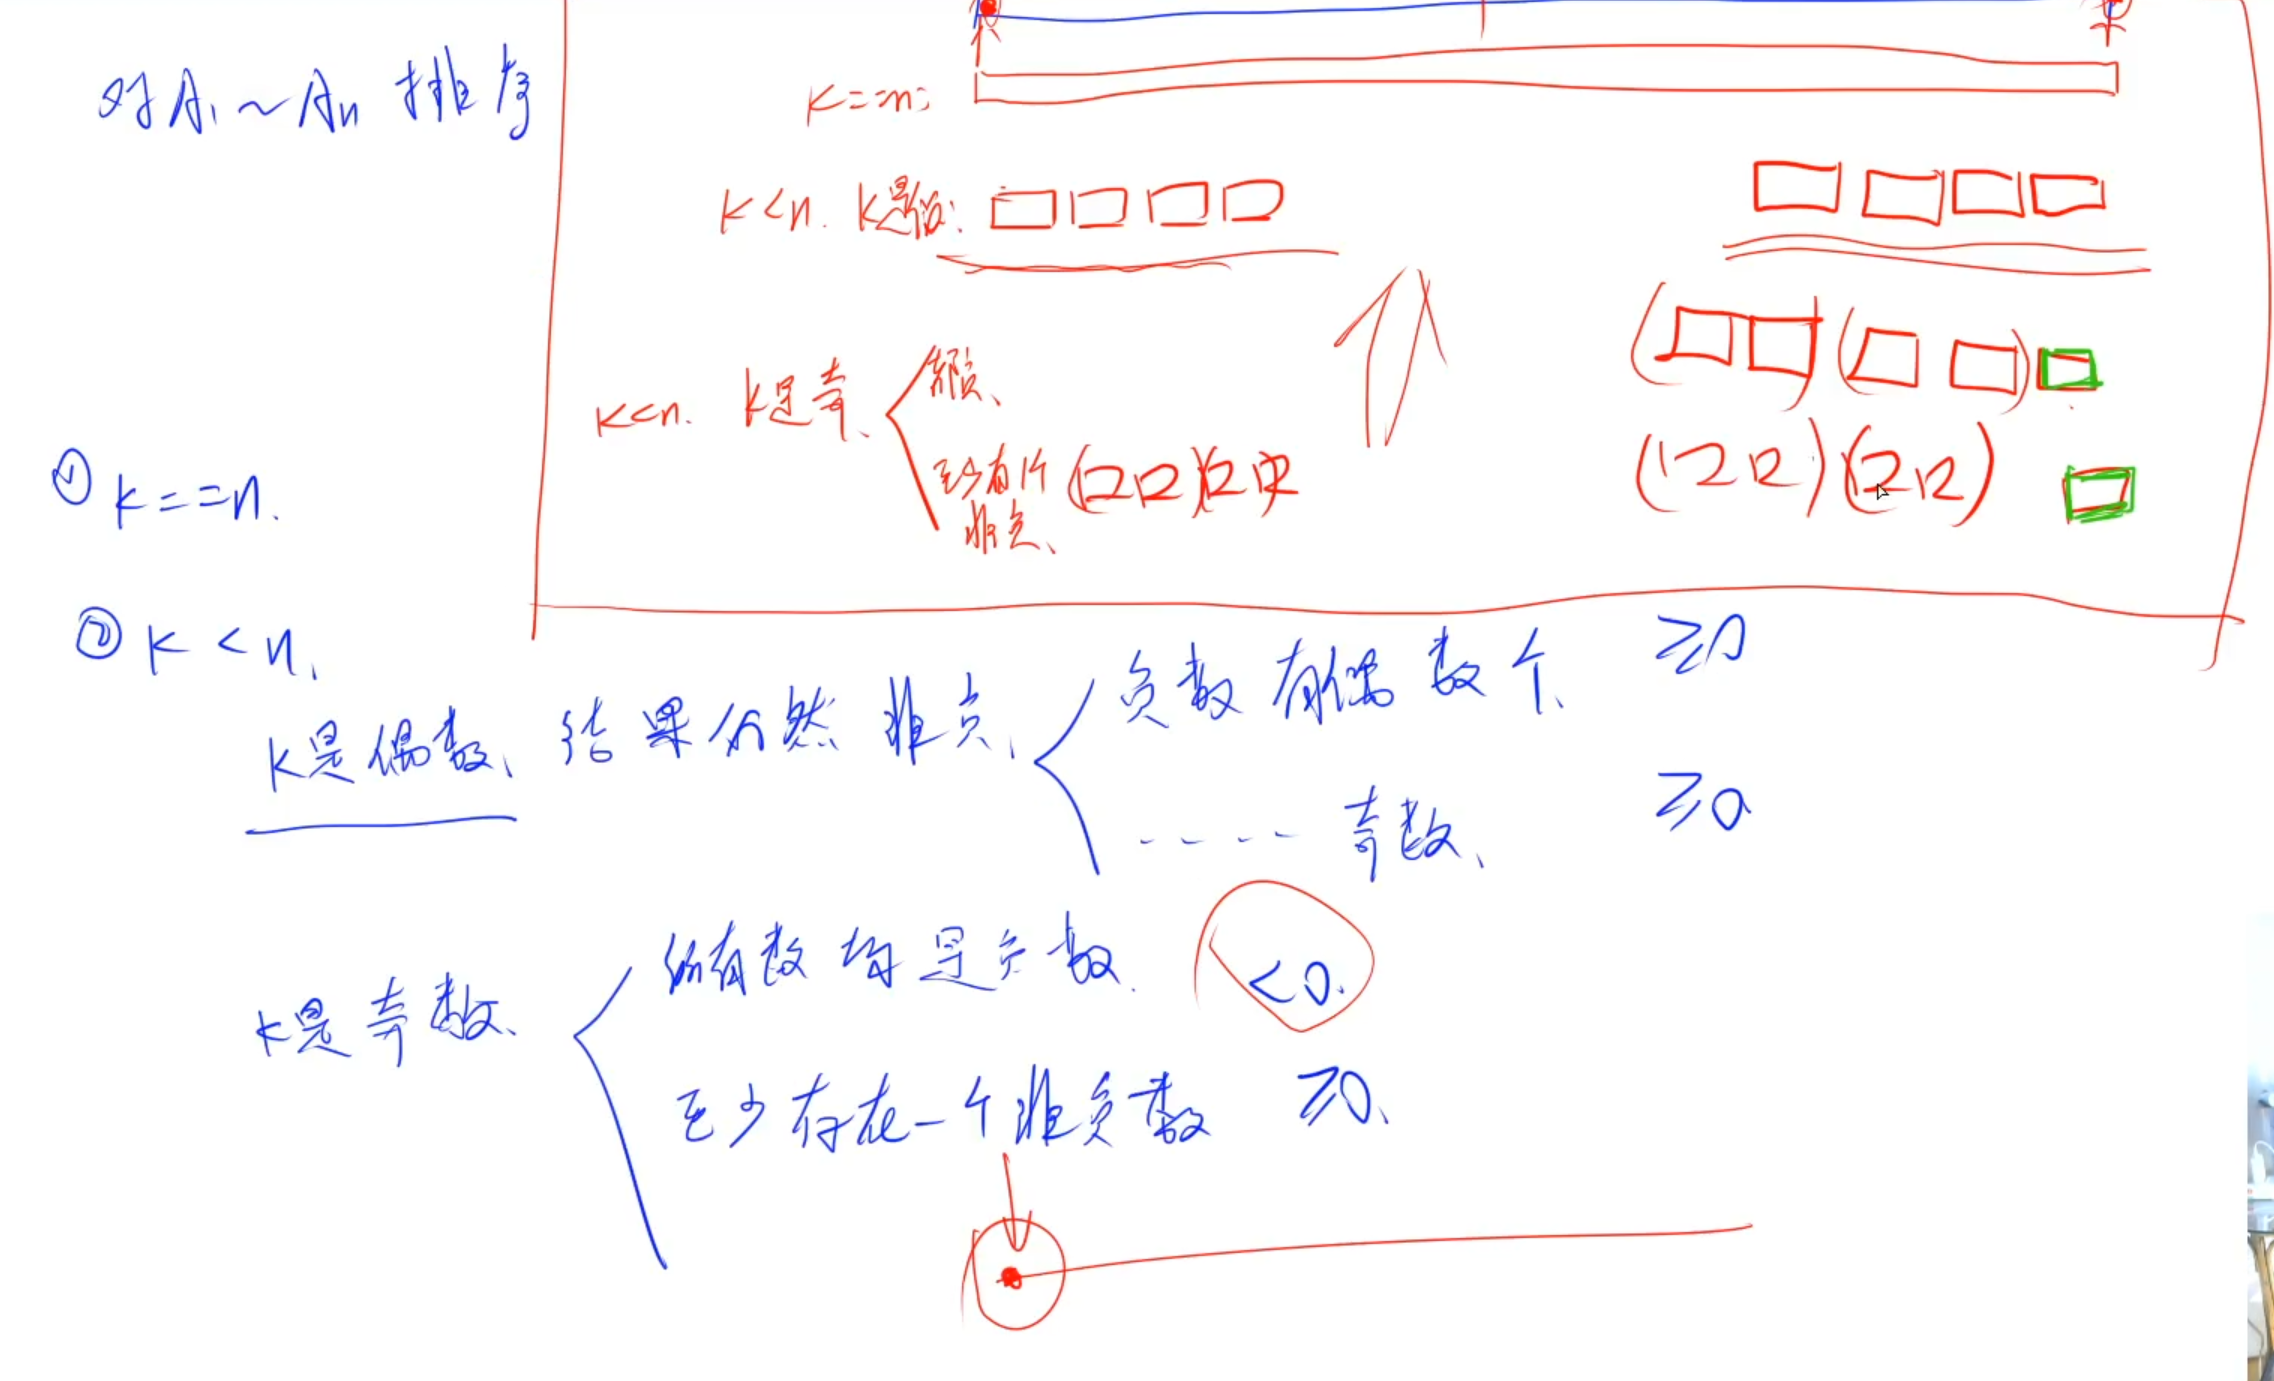 对A₁~Aₙ排序
k==n:
k<n. k是偶:
k<n. k是奇、
全负、
至少有1个
非负、
① k==n.
② k<n.
k是偶数、结果仍然非负、
负数有偶数个、 ≥0
---- 奇数、 ≥0
k是奇数、
所有数均是负数. <0.
至少存在一个非负数 ≥0、